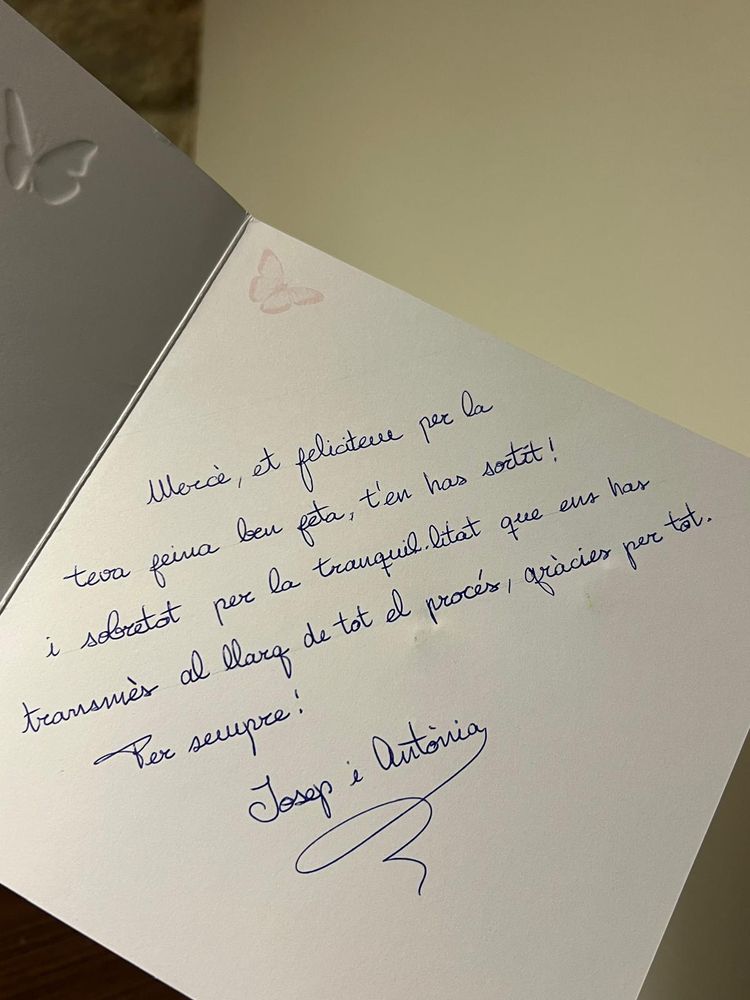 Mercè, et felicitem per la
teva feina ben feta, t'en has sortit!
i sobretot per la tranquil.litat que ens has
transmès al llarg de tot el procés, gràcies per tot.
Per sempre!
Josep i Antònia